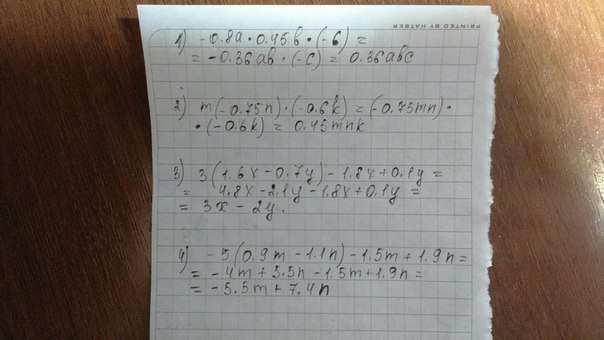 PRINTED BY HATBER
1) -0.8a · 0.45b · (-6) =
= -0.36ab · (-c) = 0.36abc
2) m(-0.75n) · (-0.6k) = (-0.75mn) ·
· (-0.6k) = 0.45mnk
3) 3(1.6x - 0.7y) - 1.8x + 0.1y =
= 4.8x - 2.1y - 1.8x + 0.1y =
= 3x - 2y.
4) -5(0.9m - 1.1n) - 1.5m + 1.9n =
= -4m + 5.5n - 1.5m + 1.9n =
= -5.5m + 7.4n